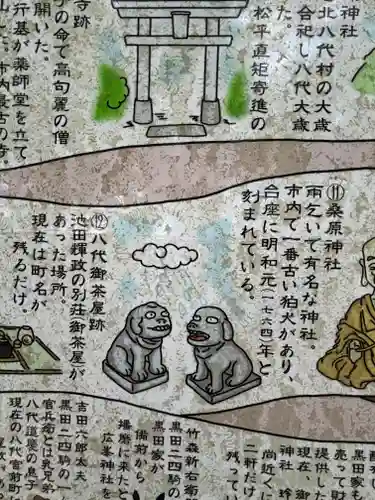 神社
北八代村の大歳
合祀し八代大歳
た。
松平直矩寄進の
寺跡
の命で高句麗の僧
開いた。
行基が薬師堂を立て
⑪桑原神社
雨乞いで有名な神社。
市内で一番古い狛犬があり、
台座に明和元(一七六四)年と
刻まれている。
⑫八代御茶屋跡
池田輝政の別荘(御茶屋が
あった場所。
現在は町名が
残るだけ。
黒田も
売って財
提供した
現在、御
玲珠神
尚近く、
二軒だけ
残って
竹森新右衛
黒田二四騎の
黒田家が
備前から
播磨に来たと
広峯神社を
吉田六郎太夫
黒田二四騎の一
官兵衛とは乳兄弟
八代道慶の息子
現在の八代宮前町